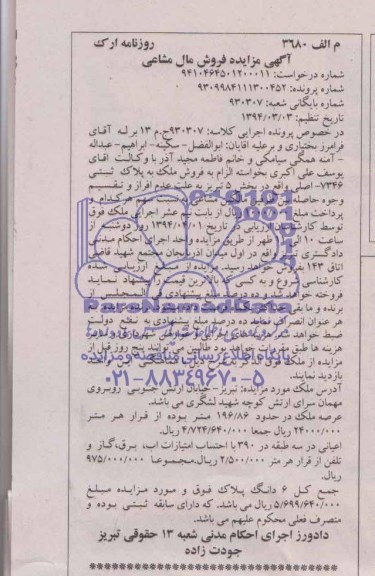 م الف ۳۶۸۰ روزنامه ارک
آگهی مزایده فروش مال مشاعی
شماره درخواست: ۹۴۱۰۴۶۴۵۰۱۲۰۰۰۱۱
شماره پرونده: ۹۳۰۹۹۸۴۱۱۱۳۰۰۴۵۲
شماره بایگانی شعبه: ۹۳۰۳۰۷
تاریخ تنظیم: ۱۳۹۴/۰۳/۰۳
در خصوص پرونده اجرایی کلاسه: ۹۳۰۳۰۷ج.م ۱۳ برله آقای
فرامرز بختیاری و برعلیه اقایان: ابوالفضل- سکینه- ابراهیم- عبداله
- آمنه همگی سیامکی و خانم فاطمه مجید آذر با وکالت اقای
یوسف علی اکبری بخواسته الزام به فروش ملک به پلاک ثبتی
۷۳۴۶- اصلی واقع در بخش ۵ تبریز به علت عدم افراز و تقسیم
وجوه حاصله بین طرفین سهم هرکدام و
پرداخت مبلغ ریال از بابت نیم عشر اجرایی ملک فوق
توسط کارشناس ارزیابی در تاریخ ۱۳۹۴/۰۴/۰۱ روز دوشنبه از
ساعت ۱۰ الی ظهر از طریق مزایده واحد اجرای احکام مدنی
دادگستری تبریز واقع در اول میدان اذربایجان مجتمع شهید قاضی
اتاق ۱۴۳ بفروش خواهد رسید. مزایده از مبلغ ارزیابی شده
کارشناسی شروع و به کسی که بالاترین قیمت را پیشنهاد نماید
فروخته خواهد شد و ده درصد مبلغ پیشنهادی فی المجلس از
برنده و ما بقی
هر عنوان انصراف نماید ده درصد مبلغ پیشنهادی به نفع دولت
ضبط خواهد شد
هزینه ها طبق مقررات خواهد بود طالبین می توانند پنج روز قبل از
مزایده از ملک فوق الذکر به آدرس ذیل با هماهنگی این واحد
بازدید نمایند.
آدرس ملک مورد مزایده: تبریز- خیابان ارتش جنوبی روبروی
مهمان سرای ارتش کوچه شهید لشگری می باشد.
عرصه ملک در حدود ۱۹۶/۸۶ متر بوده از قرار هر متر
۲۴۰۰۰/۰۰۰ ریال جمعا ۴/۷۲۴/۶۴۰/۰۰۰ ریال.
اعیانی در سه طبقه در ۳۹۰ با احتساب امتیازات اب، برق، گاز و
تلفن از قرار هر متر ۲/۵۰۰/۰۰۰ ریال، مجموعا ۹۷۵/۰۰۰/۰۰۰
ریال.
جمع کل ۶ دانگ پلاک فوق و مورد مزایده مبلغ
۵/۶۹۹/۶۴۰/۰۰۰ ریال می باشد. که دارای سابقه ثبتی بوده و
متصرف فعلی محکوم علیهم می باشد.
دادورز اجرای احکام مدنی شعبه ۱۳ حقوقی تبریز
جودت زاده
ParsNamadData
پایگاه اطلاع رسانی مناقصه و مزایده
۰۲۱-۸۸۳۴۹۶۷۰-۵